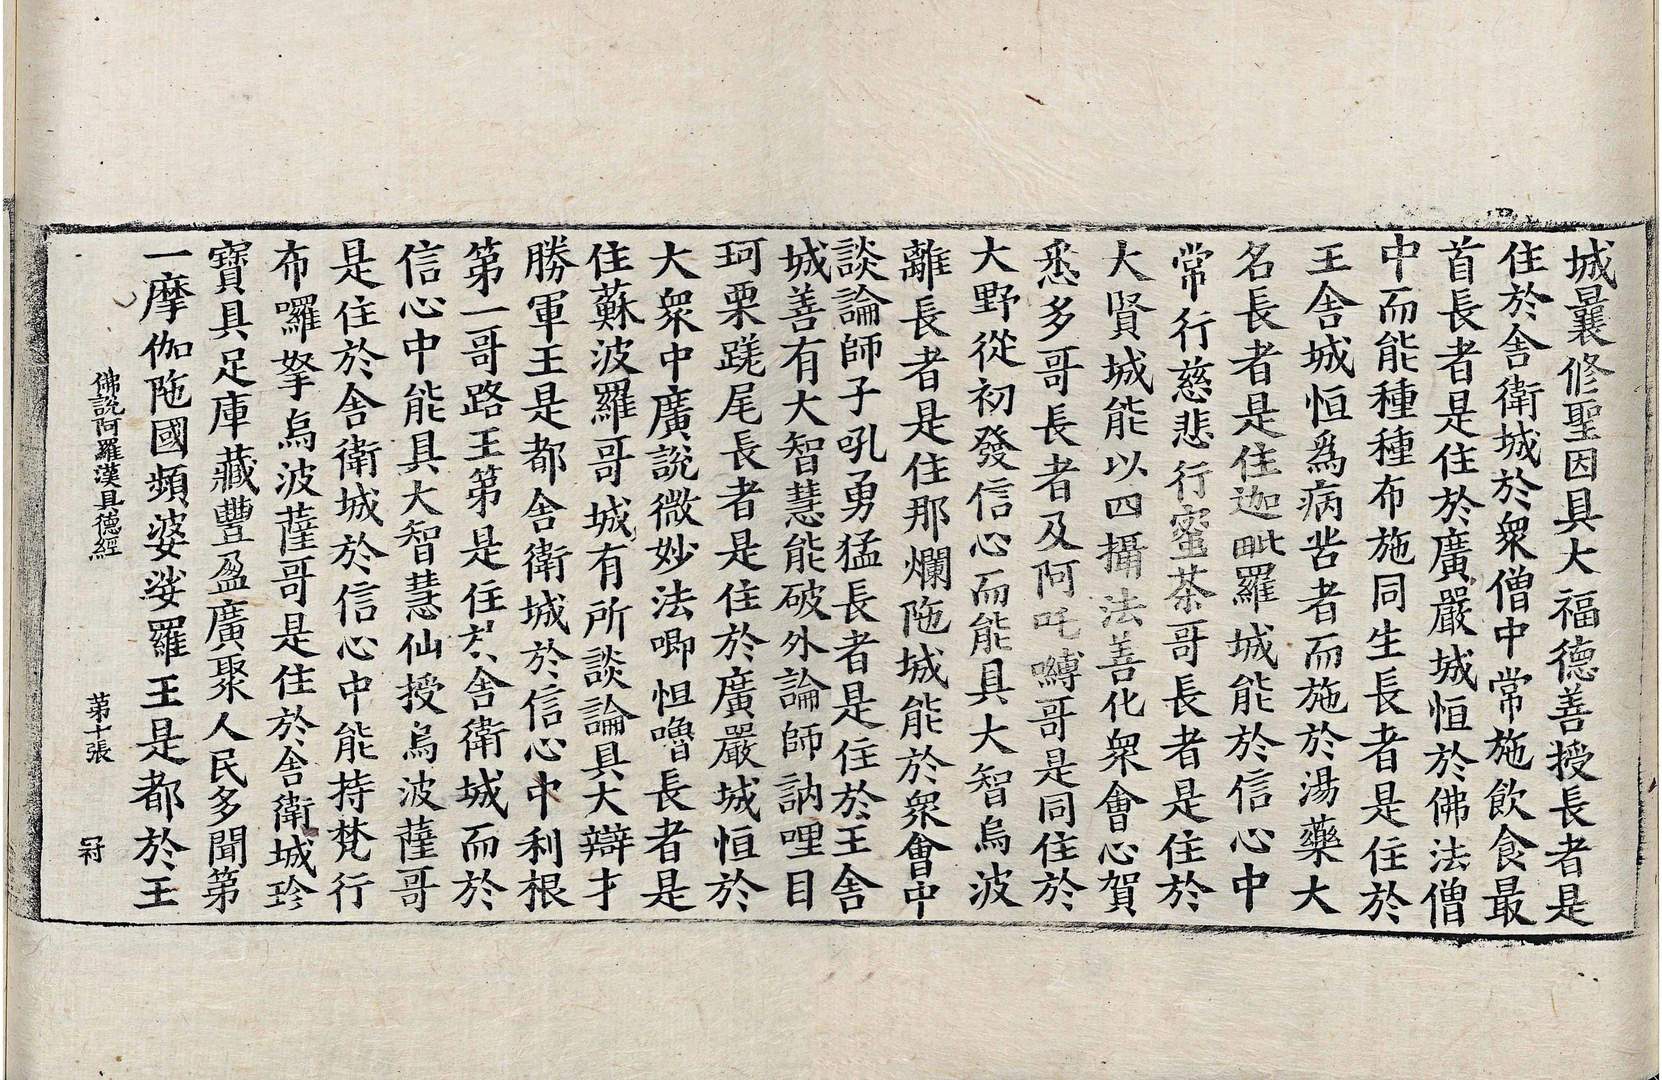 城曩修聖因具大福德善授長者是
住於舍衛城於衆僧中常施飲食最
首長者是住於廣嚴城恒於佛法僧
中而能種種布施同生長者是住於
王舍城恒爲病苦者而施於湯藥大
名長者是住迦毗羅城能於信心中
常行慈悲行蜜茶哥長者是住於
大賢城能以四攝法善化衆會心賀
悉多哥長者及阿吒嚩哥是同住於
大野從初發信心而能具大智烏波
離長者是住那爛陁城能於衆會中
談論師子吼勇猛長者是住於王舍
城善有大智慧能破外論師訥哩目
珂栗蹉尾長者是住於廣嚴城恒於
大衆中廣說微妙法唧怛嚕長者是
住蘇波羅哥城有所談論具大辯才
勝軍王是都舍衛城於信心中利根
第一哥路王第是住於舍衛城而於
信心中能具大智慧仙授烏波薩哥
是住於舍衛城於信心中能持梵行
布囉拏烏波薩哥是住於舍衛城珎
寶具足庫藏豐盈廣聚人民多聞第
一摩伽陁國頻婆娑羅王是都於王
佛說阿羅漢具德經 第十張 冠